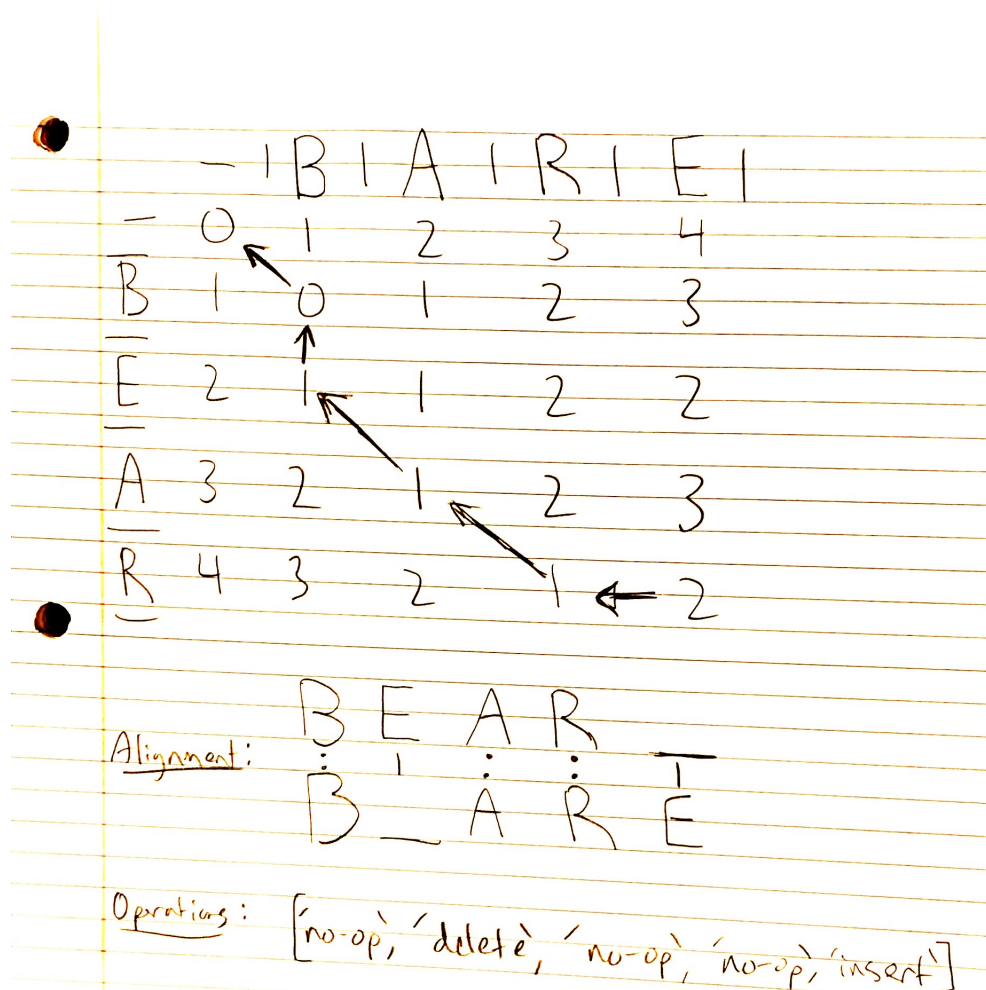 – | B | A | R | E |
– 0 1 2 3 4
B 1 0 1 2 3
E 2 1 1 2 2
A 3 2 1 2 3
R 4 3 2 1 2
B E A R _
Alignment:
B _ A R E
Operations: ['no-op', 'delete', 'no-op', 'no-op', 'insert']